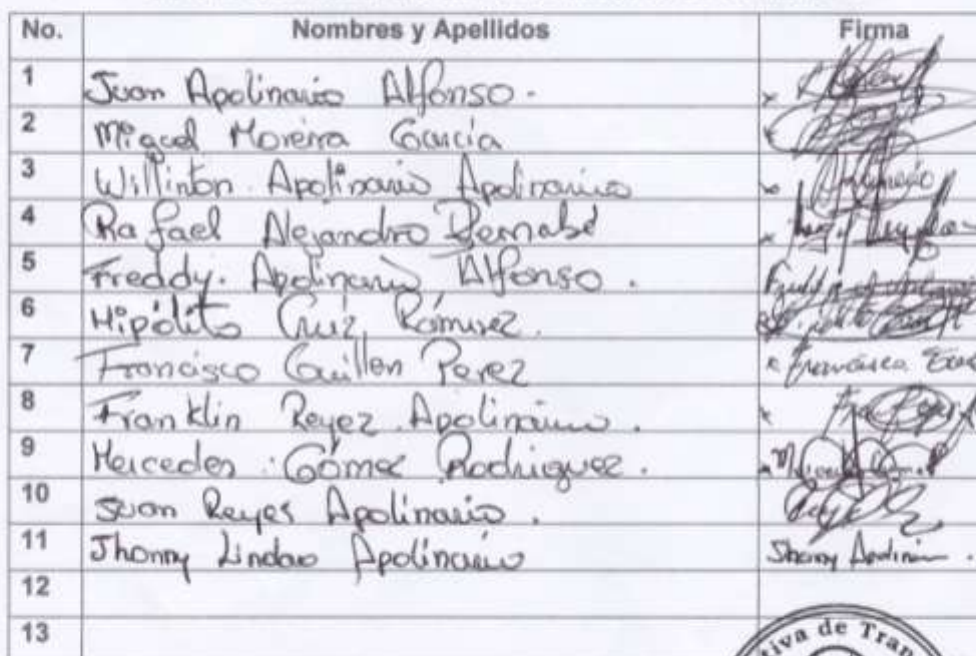 No. Nombres y Apellidos Firma
1 Juan Apolinario Alfonso.
2 Miguel Moreira Garcia
3 Willinton Apolinario Apolinario
4 Rafael Alejandro Bernabé
5 Freddy. Apolinario Alfonso.
6 Hipólito Cruz Ramirez.
7 Francisco Guillen Perez
8 Franklin Reyez Apolinario.
9 Mercedes Gómez Rodriguez.
10 Juan Reyes Apolinario.
11 Jhonny Lindao Apolinario
12
13
tiva de Tran